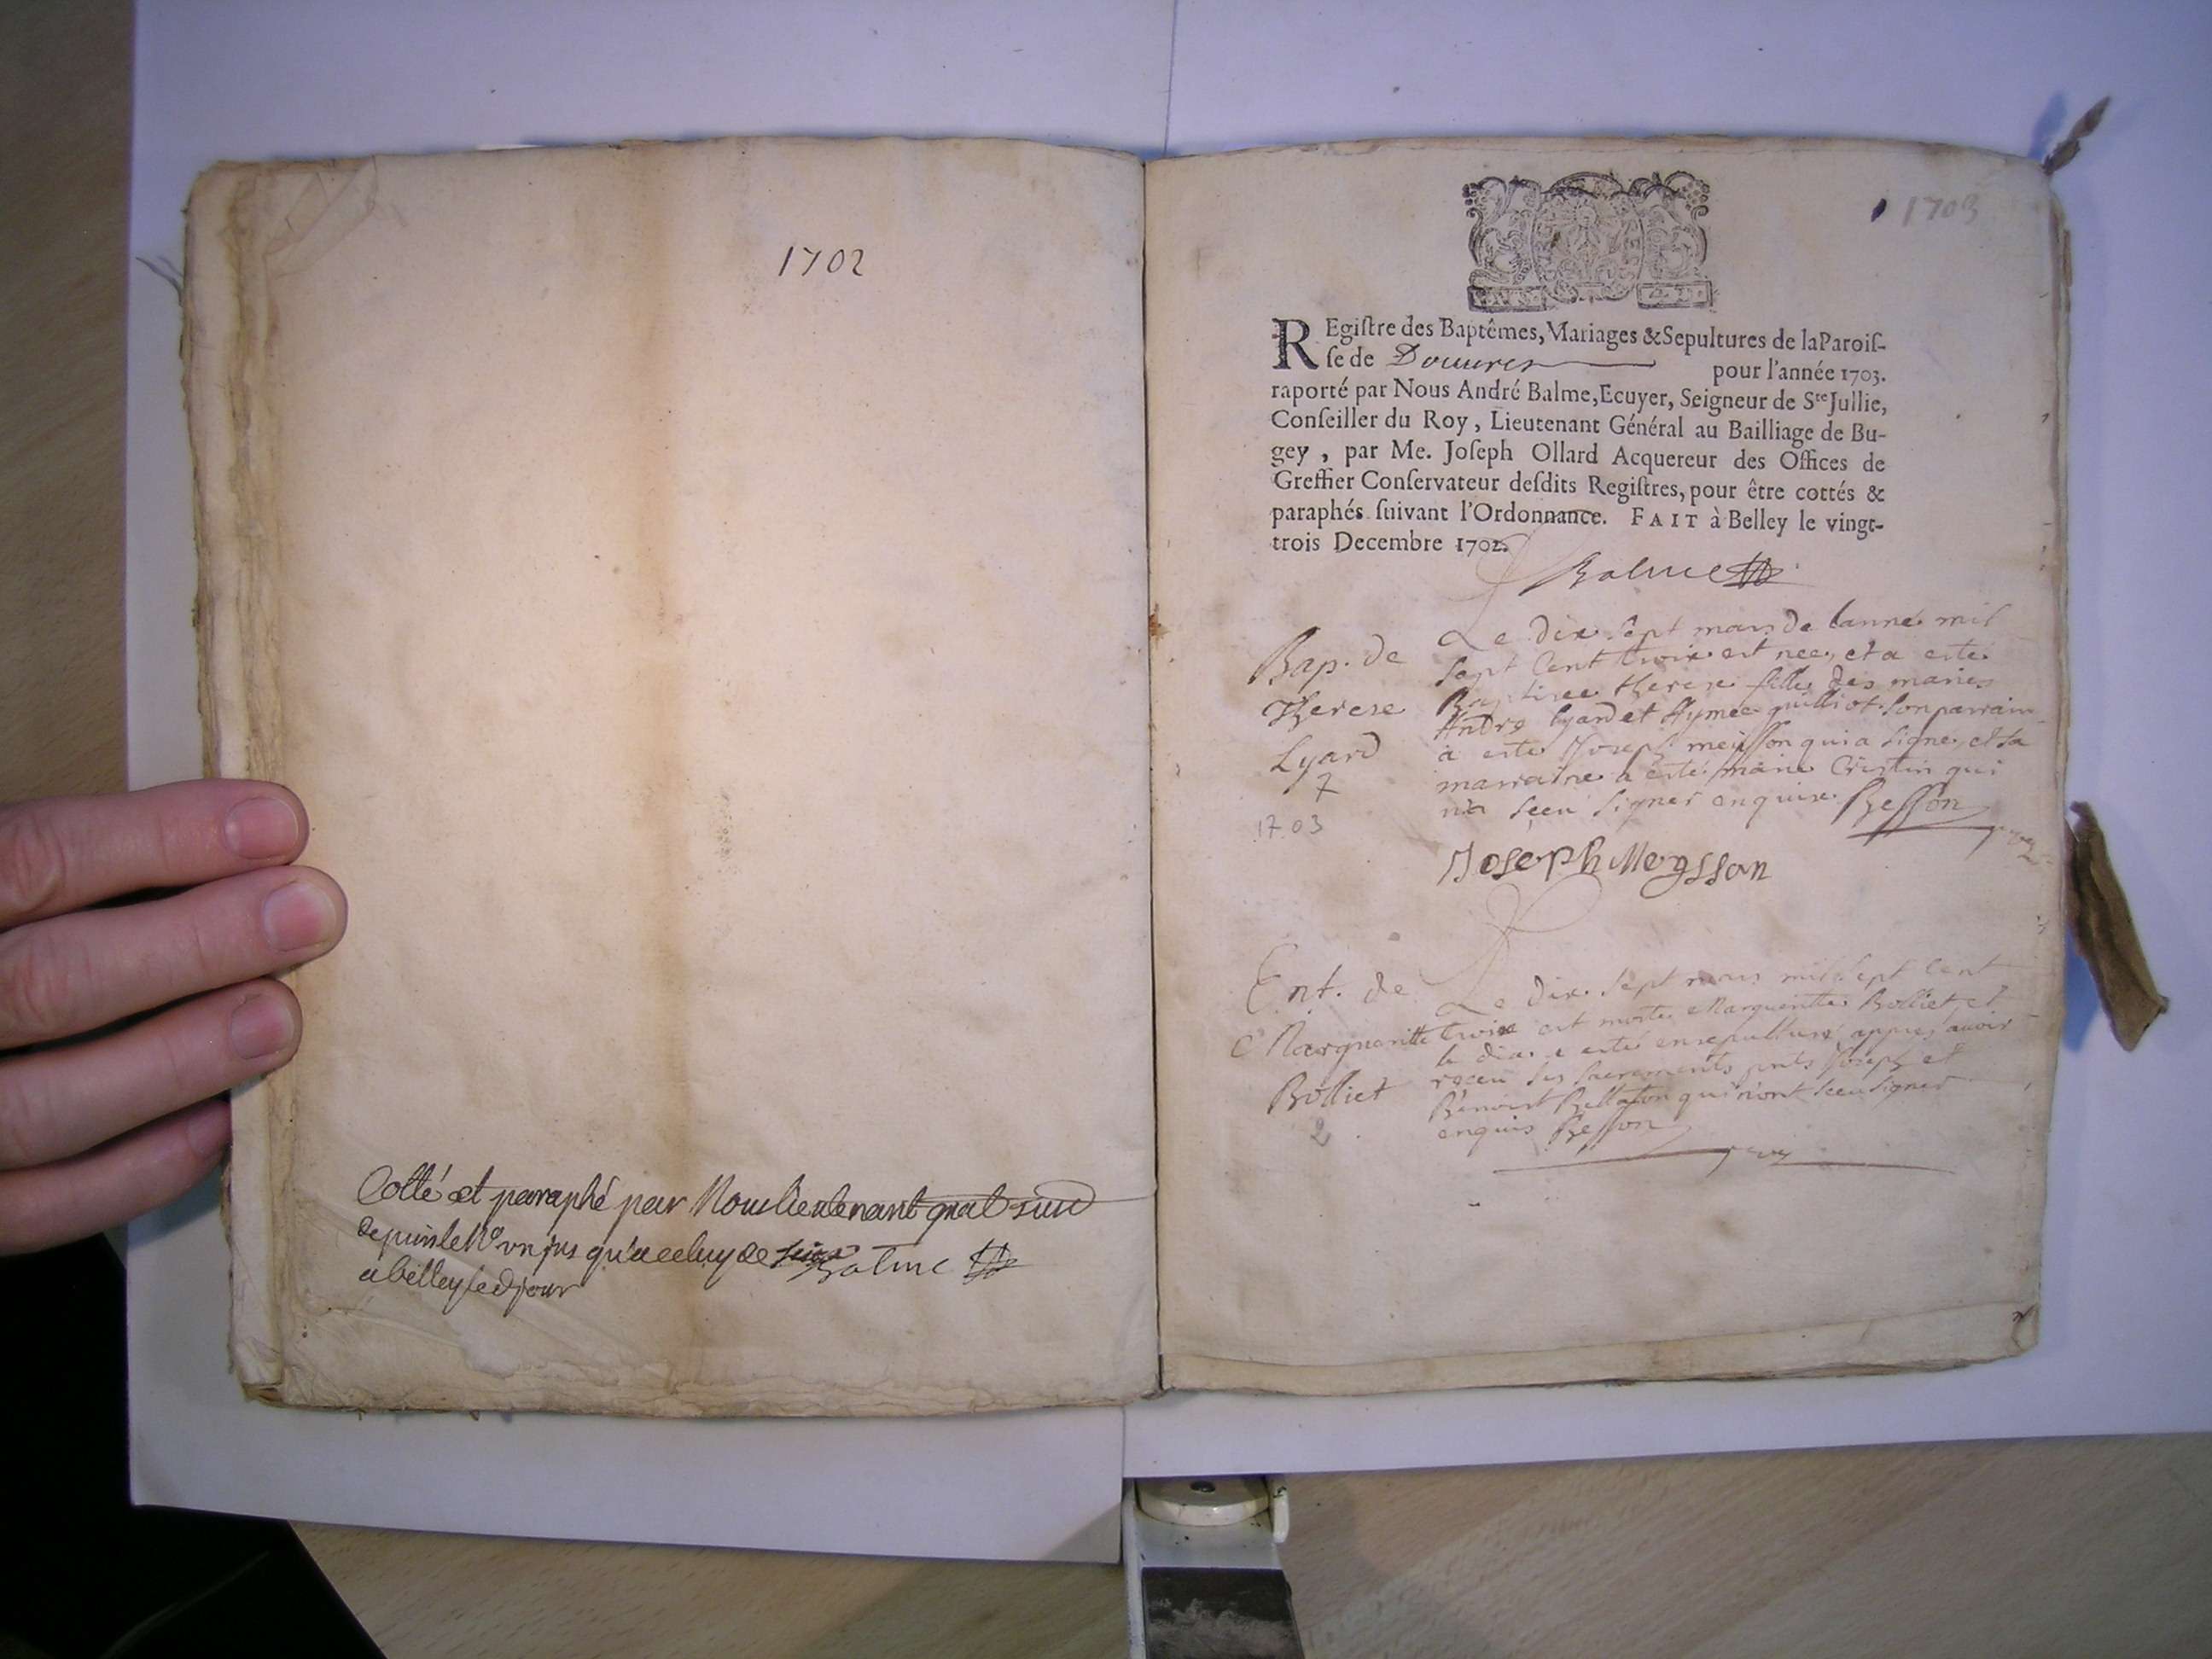 1702
Cotté et paraphé par Nous lieutenant gnal susd
depuis le No un jusqu'a celuy de Balme
a belley led jour
1703
REgiſtre des Baptêmes, Mariages & Sepultures de la Paroiſ-
ſe de Douures pour l'année 1703.
raporté par Nous André Balme, Ecuyer, Seigneur de Ste Jullie,
Conſeiller du Roy, Lieutenant Général au Bailliage de Bu-
gey, par Me. Joſeph Ollard Acquereur des Offices de
Greffier Conſervateur deſdits Regiſtres, pour être cottés &
paraphés ſuivant l'Ordonnance. FAIT à Belley le vingt-
trois Decembre 1702.
Balme
Bap. de
Therese
Lyard
7
1703
Le dix sept mars de lanné mil
sept cent trois est nee, et a esté
Baptisee therese fille des maries
Andre lyard et Aymée guilliot son parrain
a esté Joseph meisson qui a signe, et sa
marraine a esté marie Cristin qui
n'a sceu signer enquise. Besson
Joseph Meysson
Ent. de
Marguerite
Bolliet
2
Le dix sept mars mil sept cent
trois est morte Marguerite Bolliet et
le dix a esté ensepulturé appres avoir
receu ses sacrements pnts Joseph et
Benoist qui n'ont sceu signer
enquis Besson